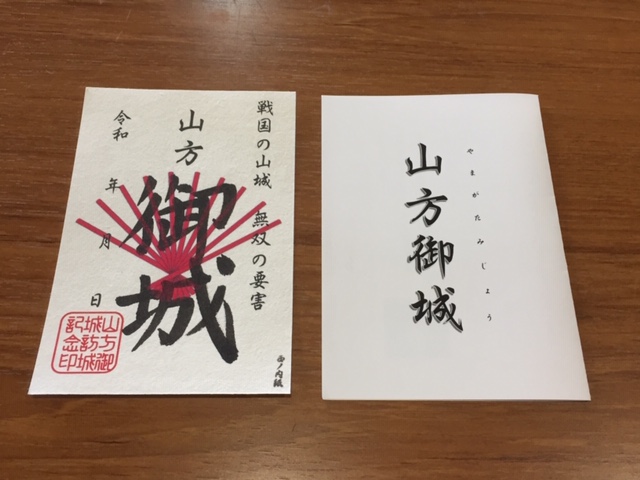 戦国の山城　無双の要害
山方
御城
令和　年　月　日
山方御
城訪城
記念印
やまがたみじょう
山方御城